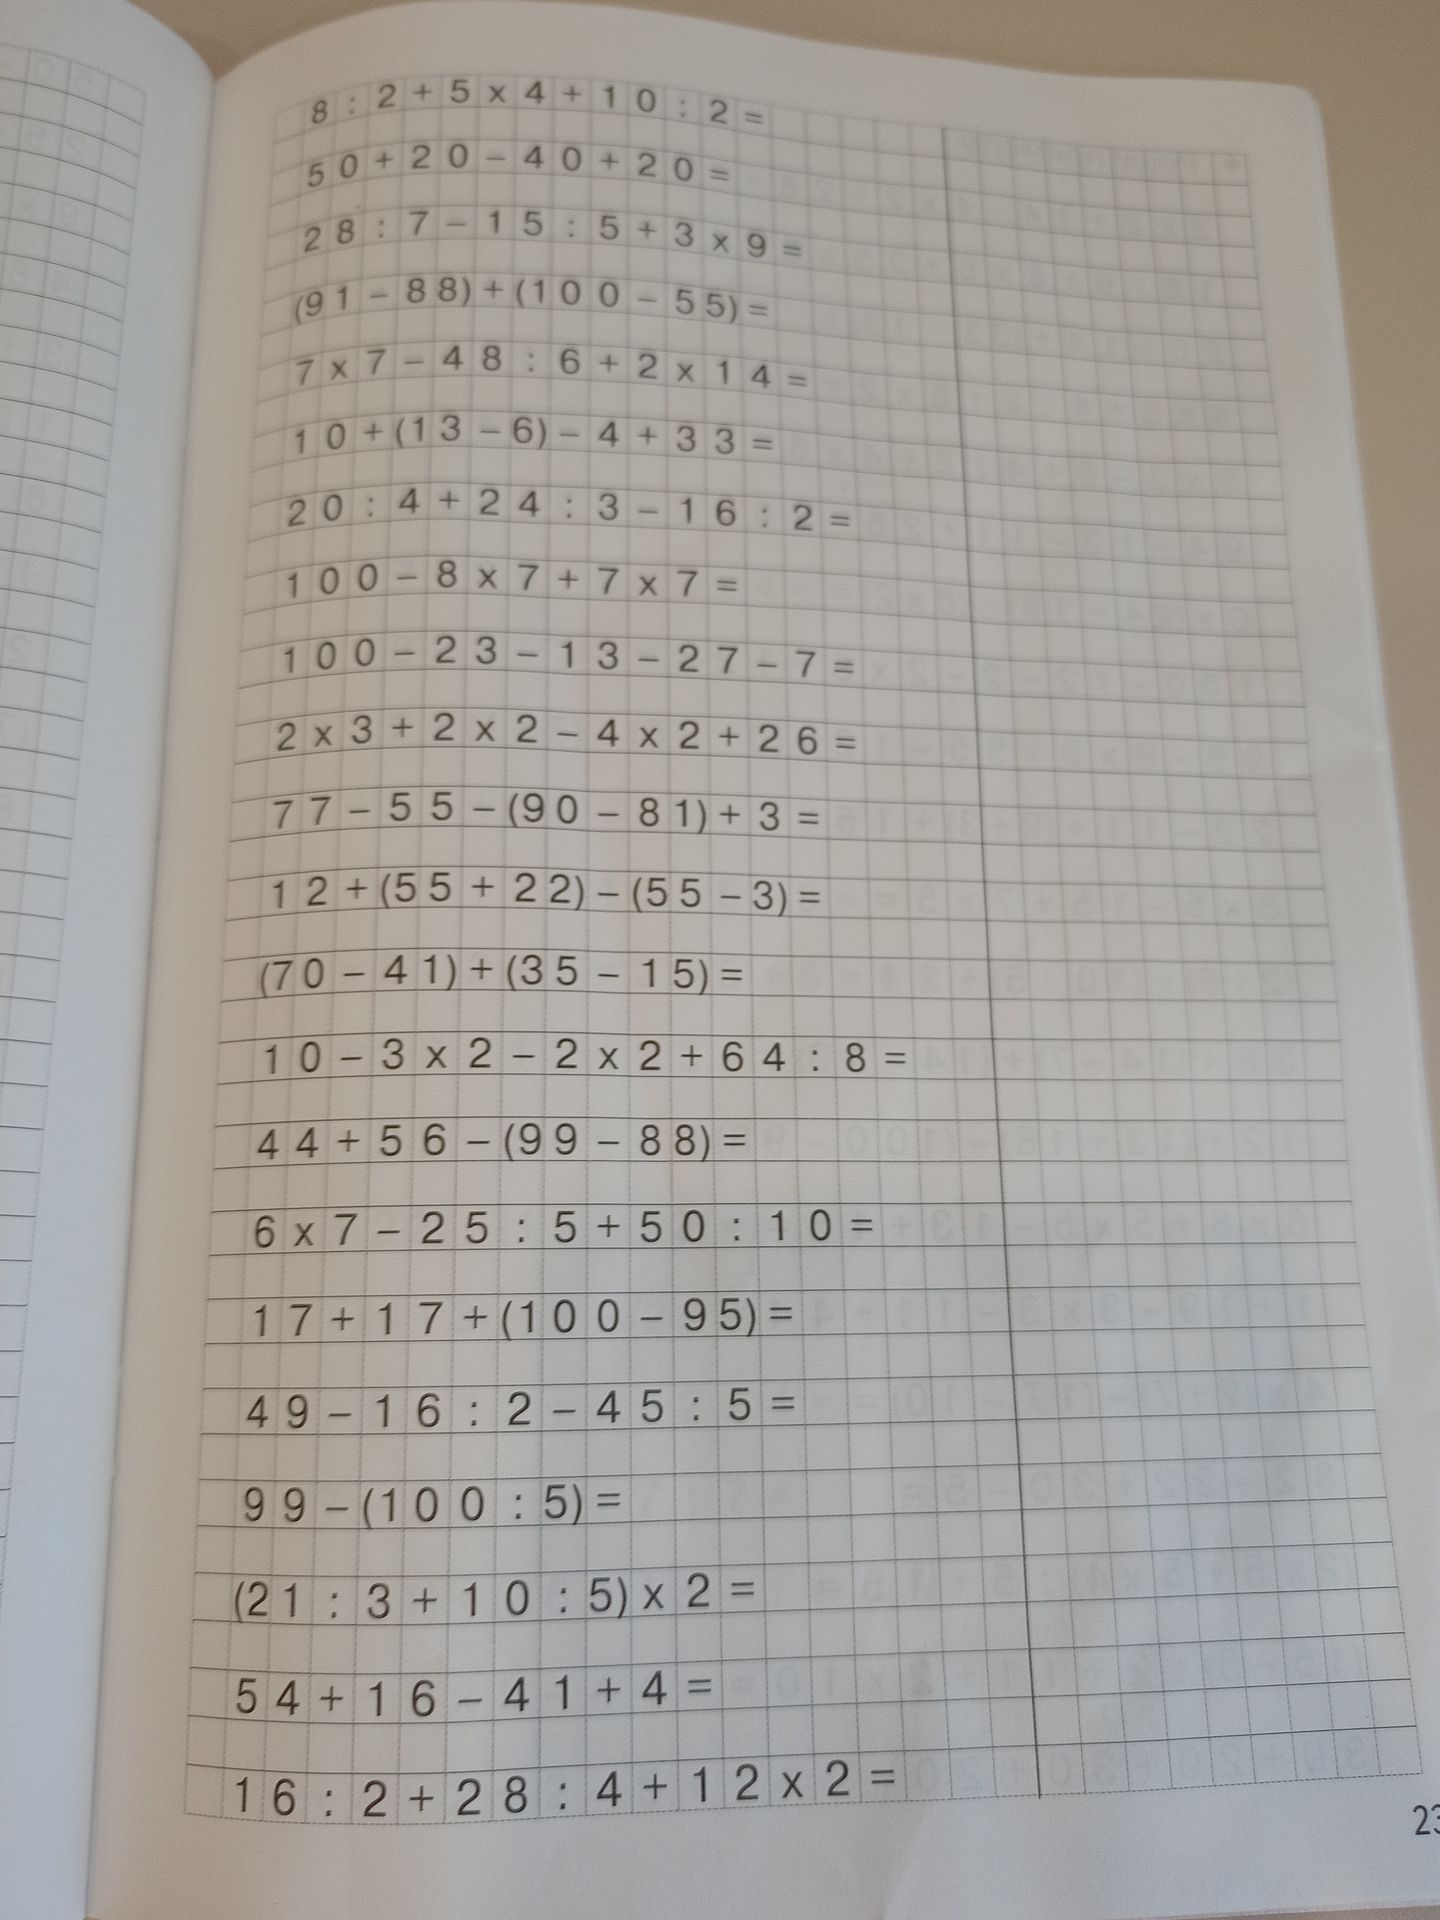 8 : 2 + 5 x 4 + 10 : 2 =
50 + 20 - 40 + 20 =
28 : 7 - 15 : 5 + 3 x 9 =
(91 - 88) + (100 - 55) =
7 x 7 - 48 : 6 + 2 x 14 =
10 + (13 - 6) - 4 + 33 =
20 : 4 + 24 : 3 - 16 : 2 =
100 - 8 x 7 + 7 x 7 =
100 - 23 - 13 - 27 - 7 =
2 x 3 + 2 x 2 - 4 x 2 + 26 =
77 - 55 - (90 - 81) + 3 =
12 + (55 + 22) - (55 - 3) =
(70 - 41) + (35 - 15) =
10 - 3 x 2 - 2 x 2 + 64 : 8 =
44 + 56 - (99 - 88) =
6 x 7 - 25 : 5 + 50 : 10 =
17 + 17 + (100 - 95) =
49 - 16 : 2 - 45 : 5 =
99 - (100 : 5) =
(21 : 3 + 10 : 5) x 2 =
54 + 16 - 41 + 4 =
16 : 2 + 28 : 4 + 12 x 2 =
23